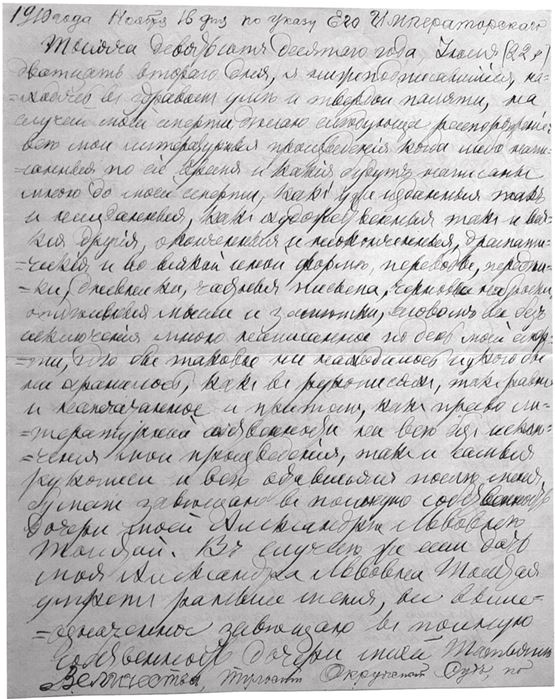 1910 года Ноября 16 дня по указу Его Императорскаго
Тысяча девятьсотъ десятаго года, Іюля (22 д)
двадцать втораго дня, я нижеподписавшійся, на-
=ходясь въ здравомъ умѣ и твердой памяти, на
случай моей смерти дѣлаю слѣдующее распоряженіе:
всѣ мои литературныя произведенія, когда либо напи-
санныя по сіе время и какія будутъ написаны
мною до моей смерти, какъ уже изданныя такъ
и неизданныя, какъ художественныя такъ и вся-
кія другія, оконченныя и неоконченныя, драмати-
=ческія и во всякой иной формѣ, переводы, передѣл-
ки, дневники, частныя письма, черновые наброски,
отдѣльныя мысли и замѣтки, словомъ все безъ
исключенія мною написанное по день моей смер-
=ти, гдѣ бы таковое ни находилось и у кого бы
ни хранилось, какъ въ рукописяхъ, такъ равно
и напечатанное и притомъ, какъ право ли-
=тературной собственности на всѣ безъ исклю-
=ченія мои произведенія, такъ и самыя
рукописи и всѣ оставшіяся послѣ меня
бумаги завѣщаю въ полную собственность
дочери моей Александрѣ Львовнѣ
Толстой. Въ случаѣ же если дочь
моя Александра Львовна Толстая
умретъ раньше меня, все выше-
=означенное завѣщаю въ полную
собственность дочери моей Татьянѣ
Величества, Тульскій Окружный Судъ, по